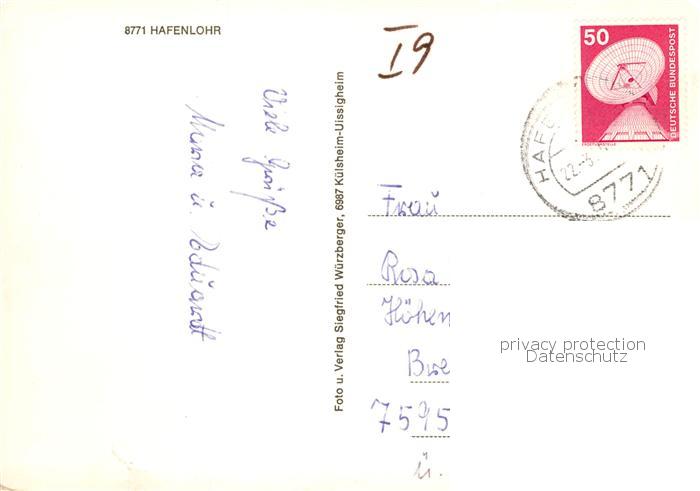 8771 HAFENLOHR
Viele Grüße
u. Eduardt
Foto u. Verlag Siegfried Würzberger, 6987 Külsheim-Uissigheim
I9
50
DEUTSCHE BUNDESPOST
ERDEFUNKSTELLE
HAFE
22.-3.
8771
Frau
Rosa
Höhen
7595
ü.
privacy protection
Datenschutz